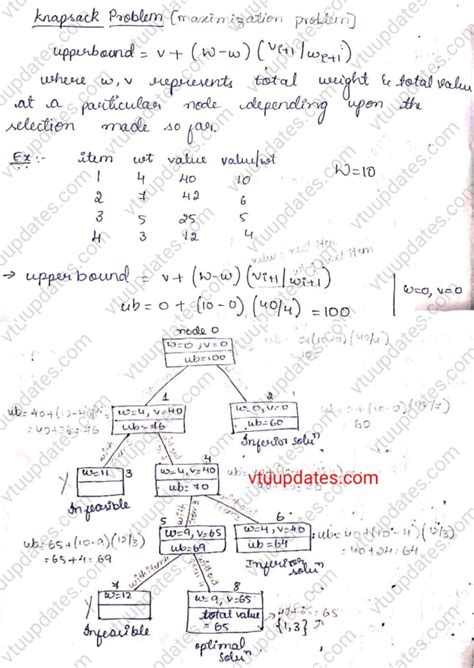 knapsack Problem [maximization problem]
upperbound = v + (W-w) (vi+1/wi+1)
where w, v represents total weight & total value
at a particular node depending upon the
selection made so far.
Ex :- item wt value value/wt
1 4 40 10 W=10
2 7 42 6
3 5 25 5
4 3 12 4
→ upperbound = v + (W-w) (vi+1/wi+1)
ub = 0 + (10-0) (40/4) = 100 w=0, v=0
node 0
w=0, v=0
ub=100
1 2
w=4, v=40 w=0, v=0
ub=76 ub=60
= 40+6*6=76 60
Inferior soluⁿ
4
w=11 3 w=4, v=40
ub=70
Infeasible
vtuupdates.com
5 6
w=9, v=65 w=4, v=40
ub=69 ub=64
ub=65+(10-9)(12/3)
=65+4=69 =40+24=64
Inferior soluⁿ
7 8
w=12 w=9, v=65
total value
=65
40+25=65
{1,3}
Infeasible optimal soluⁿ